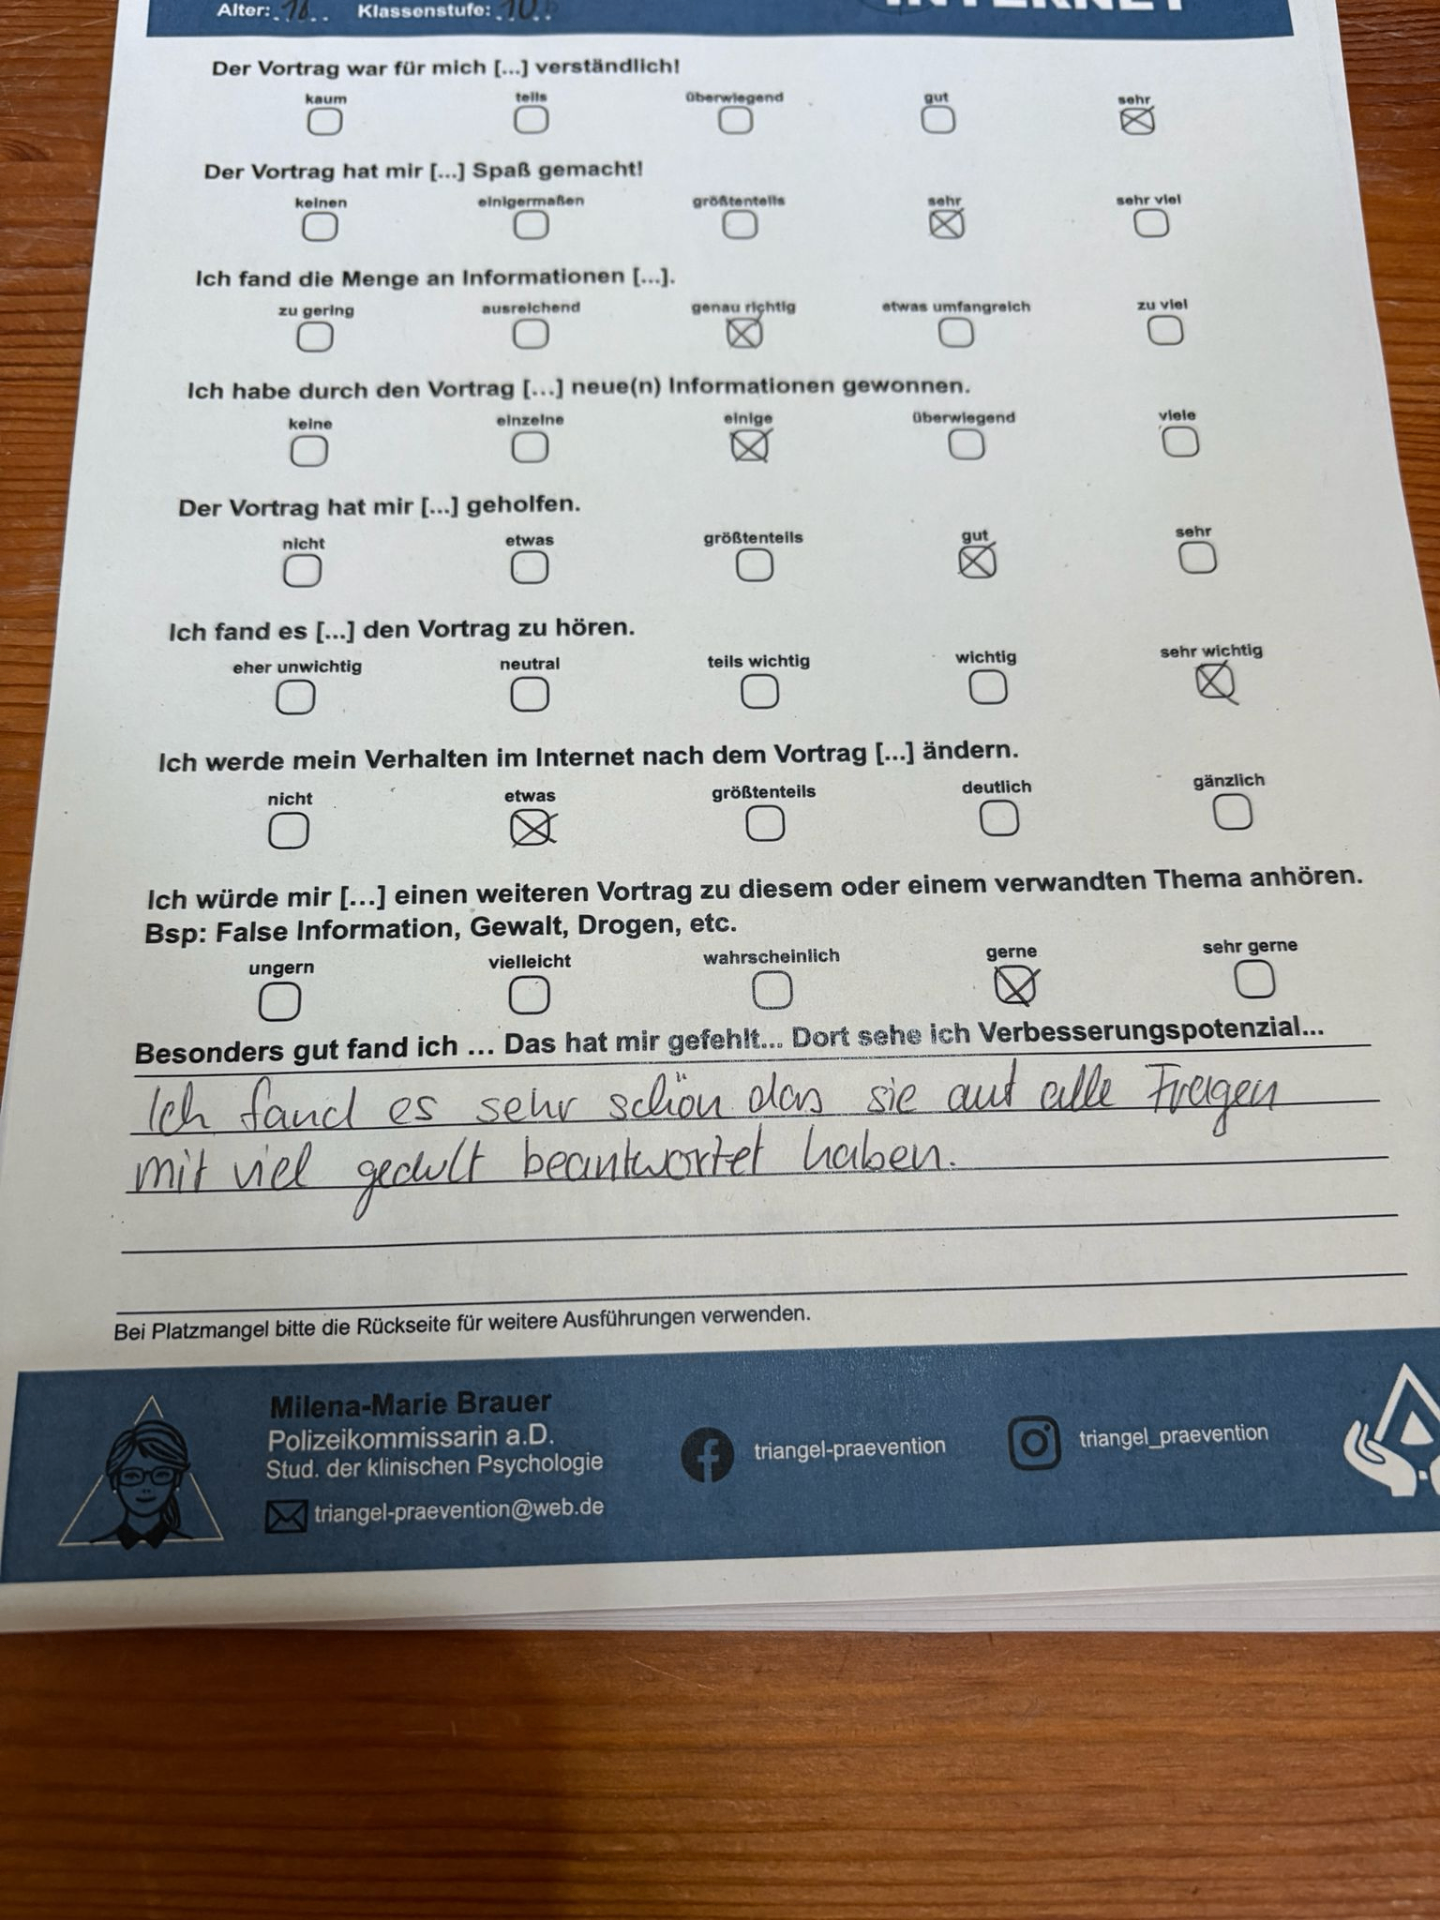 Alter: 16 Klassenstufe: 10
INTERNET
Der Vortrag war für mich [...] verständlich!
kaum teils überwiegend gut sehr
Der Vortrag hat mir [...] Spaß gemacht!
keinen einigermaßen größtenteils sehr sehr viel
Ich fand die Menge an Informationen [...].
zu gering ausreichend genau richtig etwas umfangreich zu viel
Ich habe durch den Vortrag [...] neue(n) Informationen gewonnen.
keine einzelne einige überwiegend viele
Der Vortrag hat mir [...] geholfen.
nicht etwas größtenteils gut sehr
Ich fand es [...] den Vortrag zu hören.
eher unwichtig neutral teils wichtig wichtig sehr wichtig
Ich werde mein Verhalten im Internet nach dem Vortrag [...] ändern.
nicht etwas größtenteils deutlich gänzlich
Ich würde mir [...] einen weiteren Vortrag zu diesem oder einem verwandten Thema anhören.
Bsp: False Information, Gewalt, Drogen, etc.
ungern vielleicht wahrscheinlich gerne sehr gerne
Besonders gut fand ich ... Das hat mir gefehlt... Dort sehe ich Verbesserungspotenzial...
Ich fand es sehr schön das sie auf alle Fragen
mit viel gedult beantwortet haben.
Bei Platzmangel bitte die Rückseite für weitere Ausführungen verwenden.
Milena-Marie Brauer
Polizeikommissarin a.D.
Stud. der klinischen Psychologie
triangel-praevention@web.de
triangel-praevention
triangel_praevention